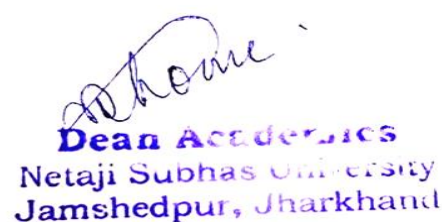 Dean Academics
Netaji Subhas University
Jamshedpur, Jharkhand